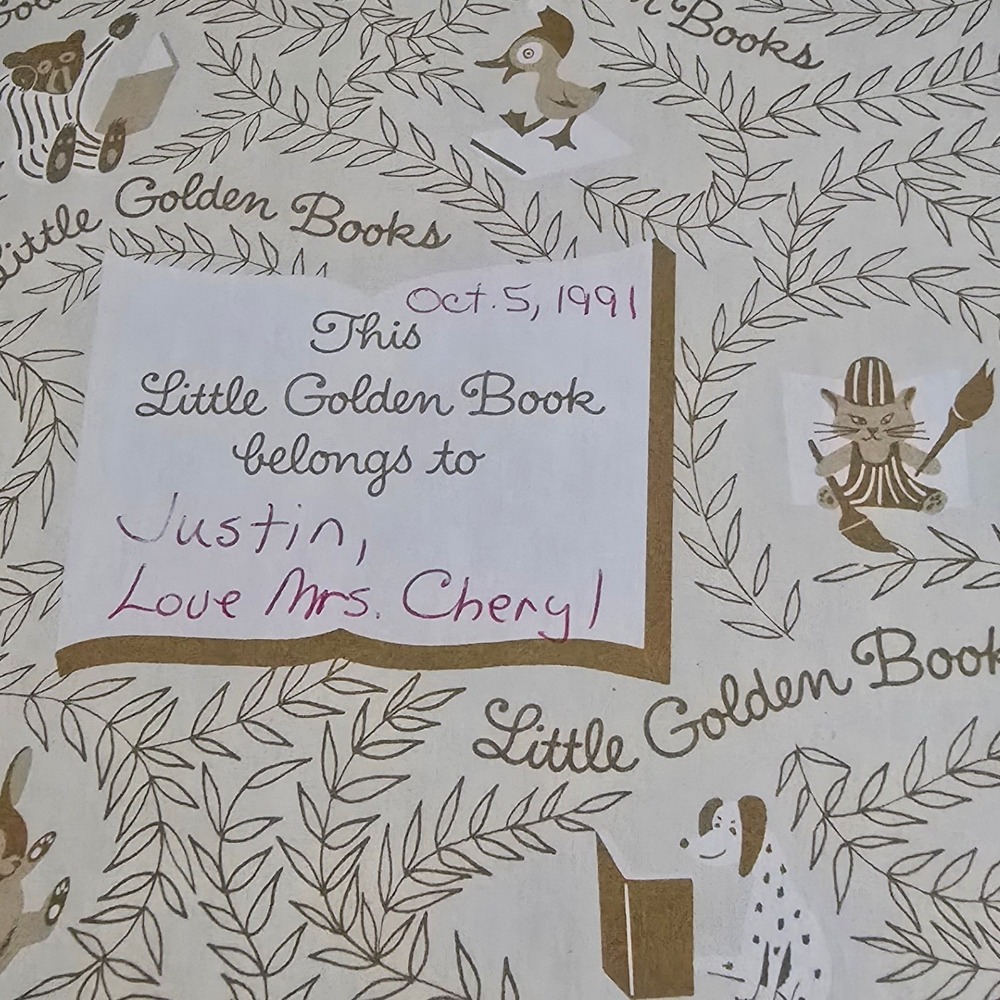 Books
Little Golden Books
Oct. 5, 1991
This
Little Golden Book
belongs to
Justin,
Love Mrs. Cheryl
Little Golden Book